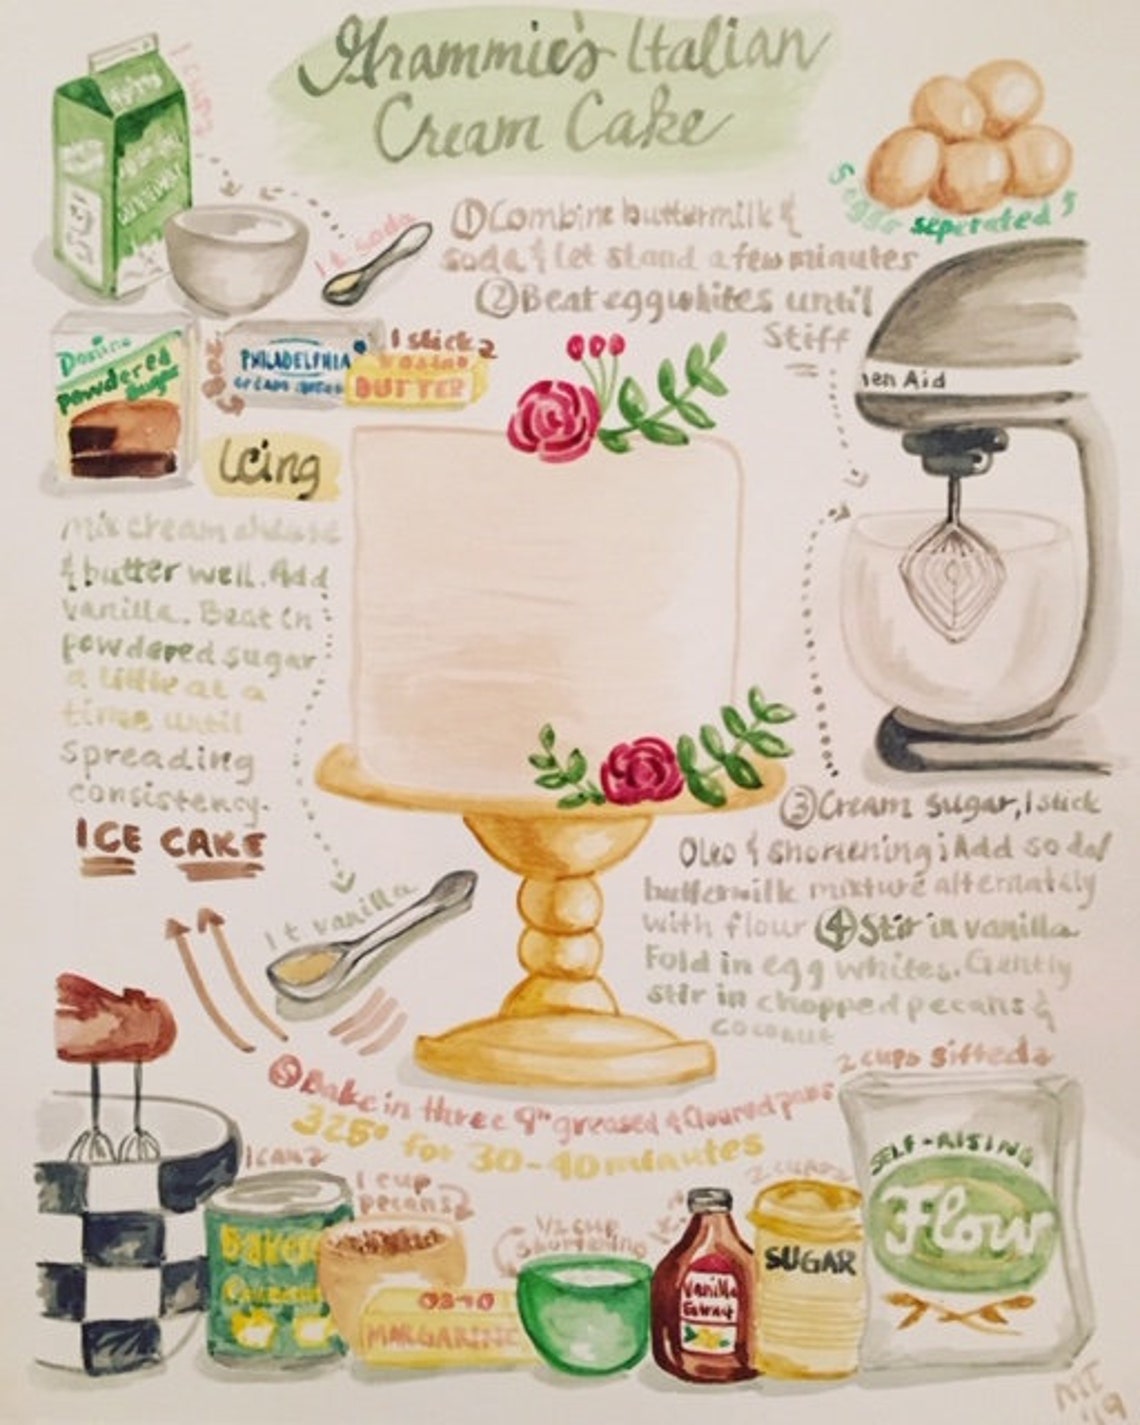 Grammie's Italian
Cream Cake
1 cup
1 t soda
5 eggs seperated
① Combine buttermilk &
soda & let stand a few minutes
② Beat eggwhites until
Stiff
Domino
Powdered
Sugar
8 oz.
PHILADELPHIA
CREAM CHEESE
1 stick
BUTTER
en Aid
Icing
Mix cream cheese
& butter well. Add
vanilla. Beat in
powdered sugar
a little at a
time until
spreading
consistency.
ICE CAKE
1 t vanilla
③ Cream sugar, 1 stick
Oleo & shortening; Add soda/
buttermilk mixture alternately
with flour ④ Stir in vanilla
Fold in egg whites. Gently
stir in chopped pecans &
coconut
⑤ Bake in three 9" greased & floured pans
325° for 30-40 minutes
2 cups sifted
SELF-RISING
Flour
1 can
Baker's
Coconut
1 cup
pecans
MARGARINE
1/2 cup
shortening
Vanilla
Extract
2 cups
SUGAR
'19